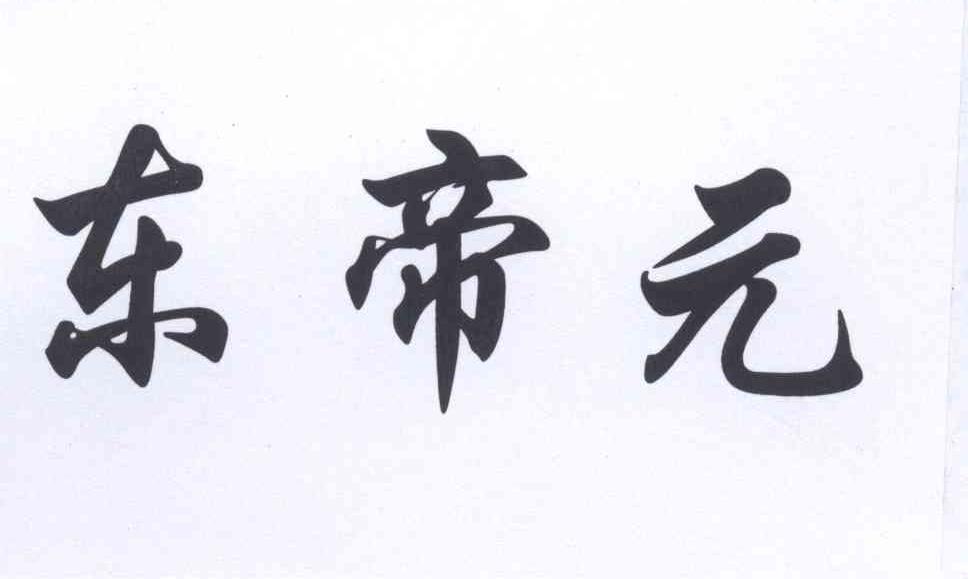 东帝元